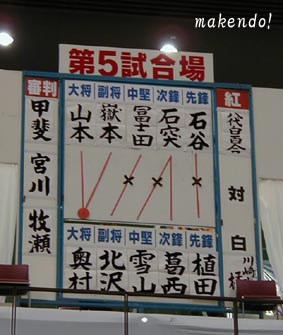 makendo!
第5試合場
審判
甲斐
宮川
牧瀬
大将 副将 中堅 次鋒 先鋒
山本 嶽本 冨士田 石突 石谷
奥村 北沢 雪山 葛西 植田
紅
対
白
川崎